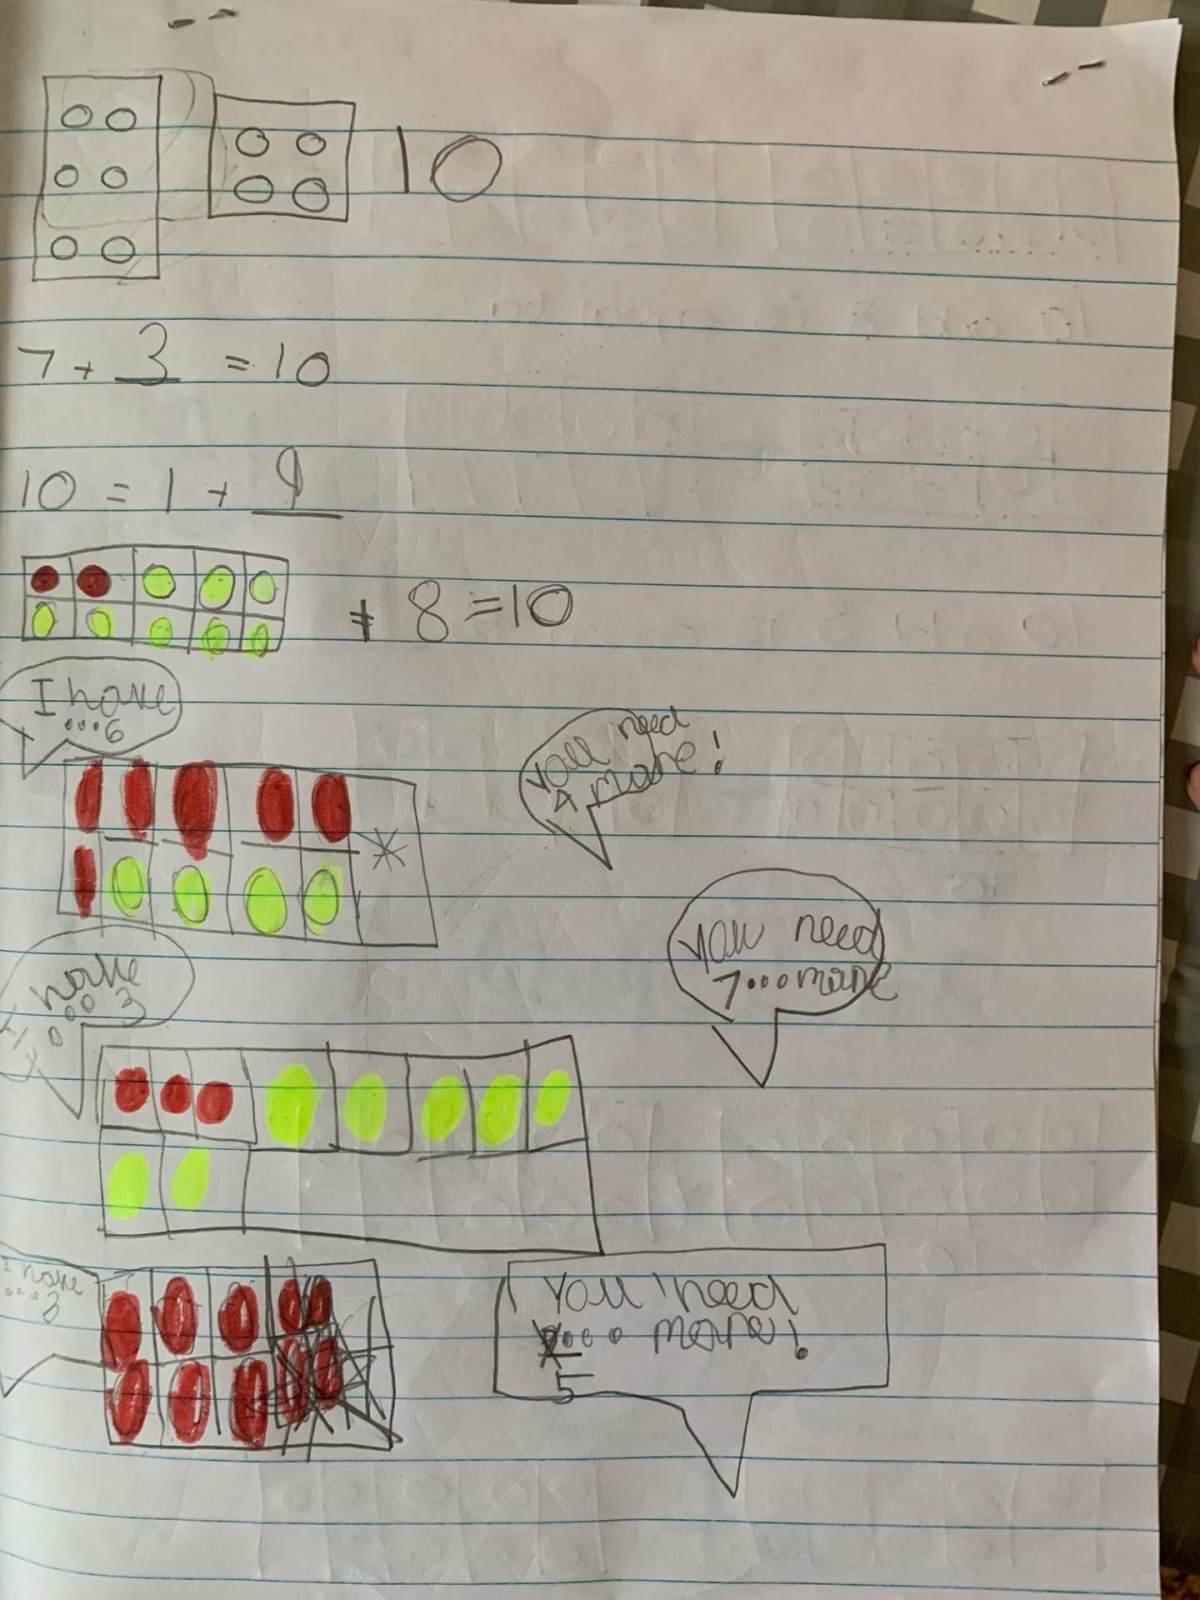 10
7 + 3 = 10
10 = 1 + 9
+ 8 = 10
I have
...6
You need
4 more!
I have
...3
You need
7...more
I have
You need
...more!
5